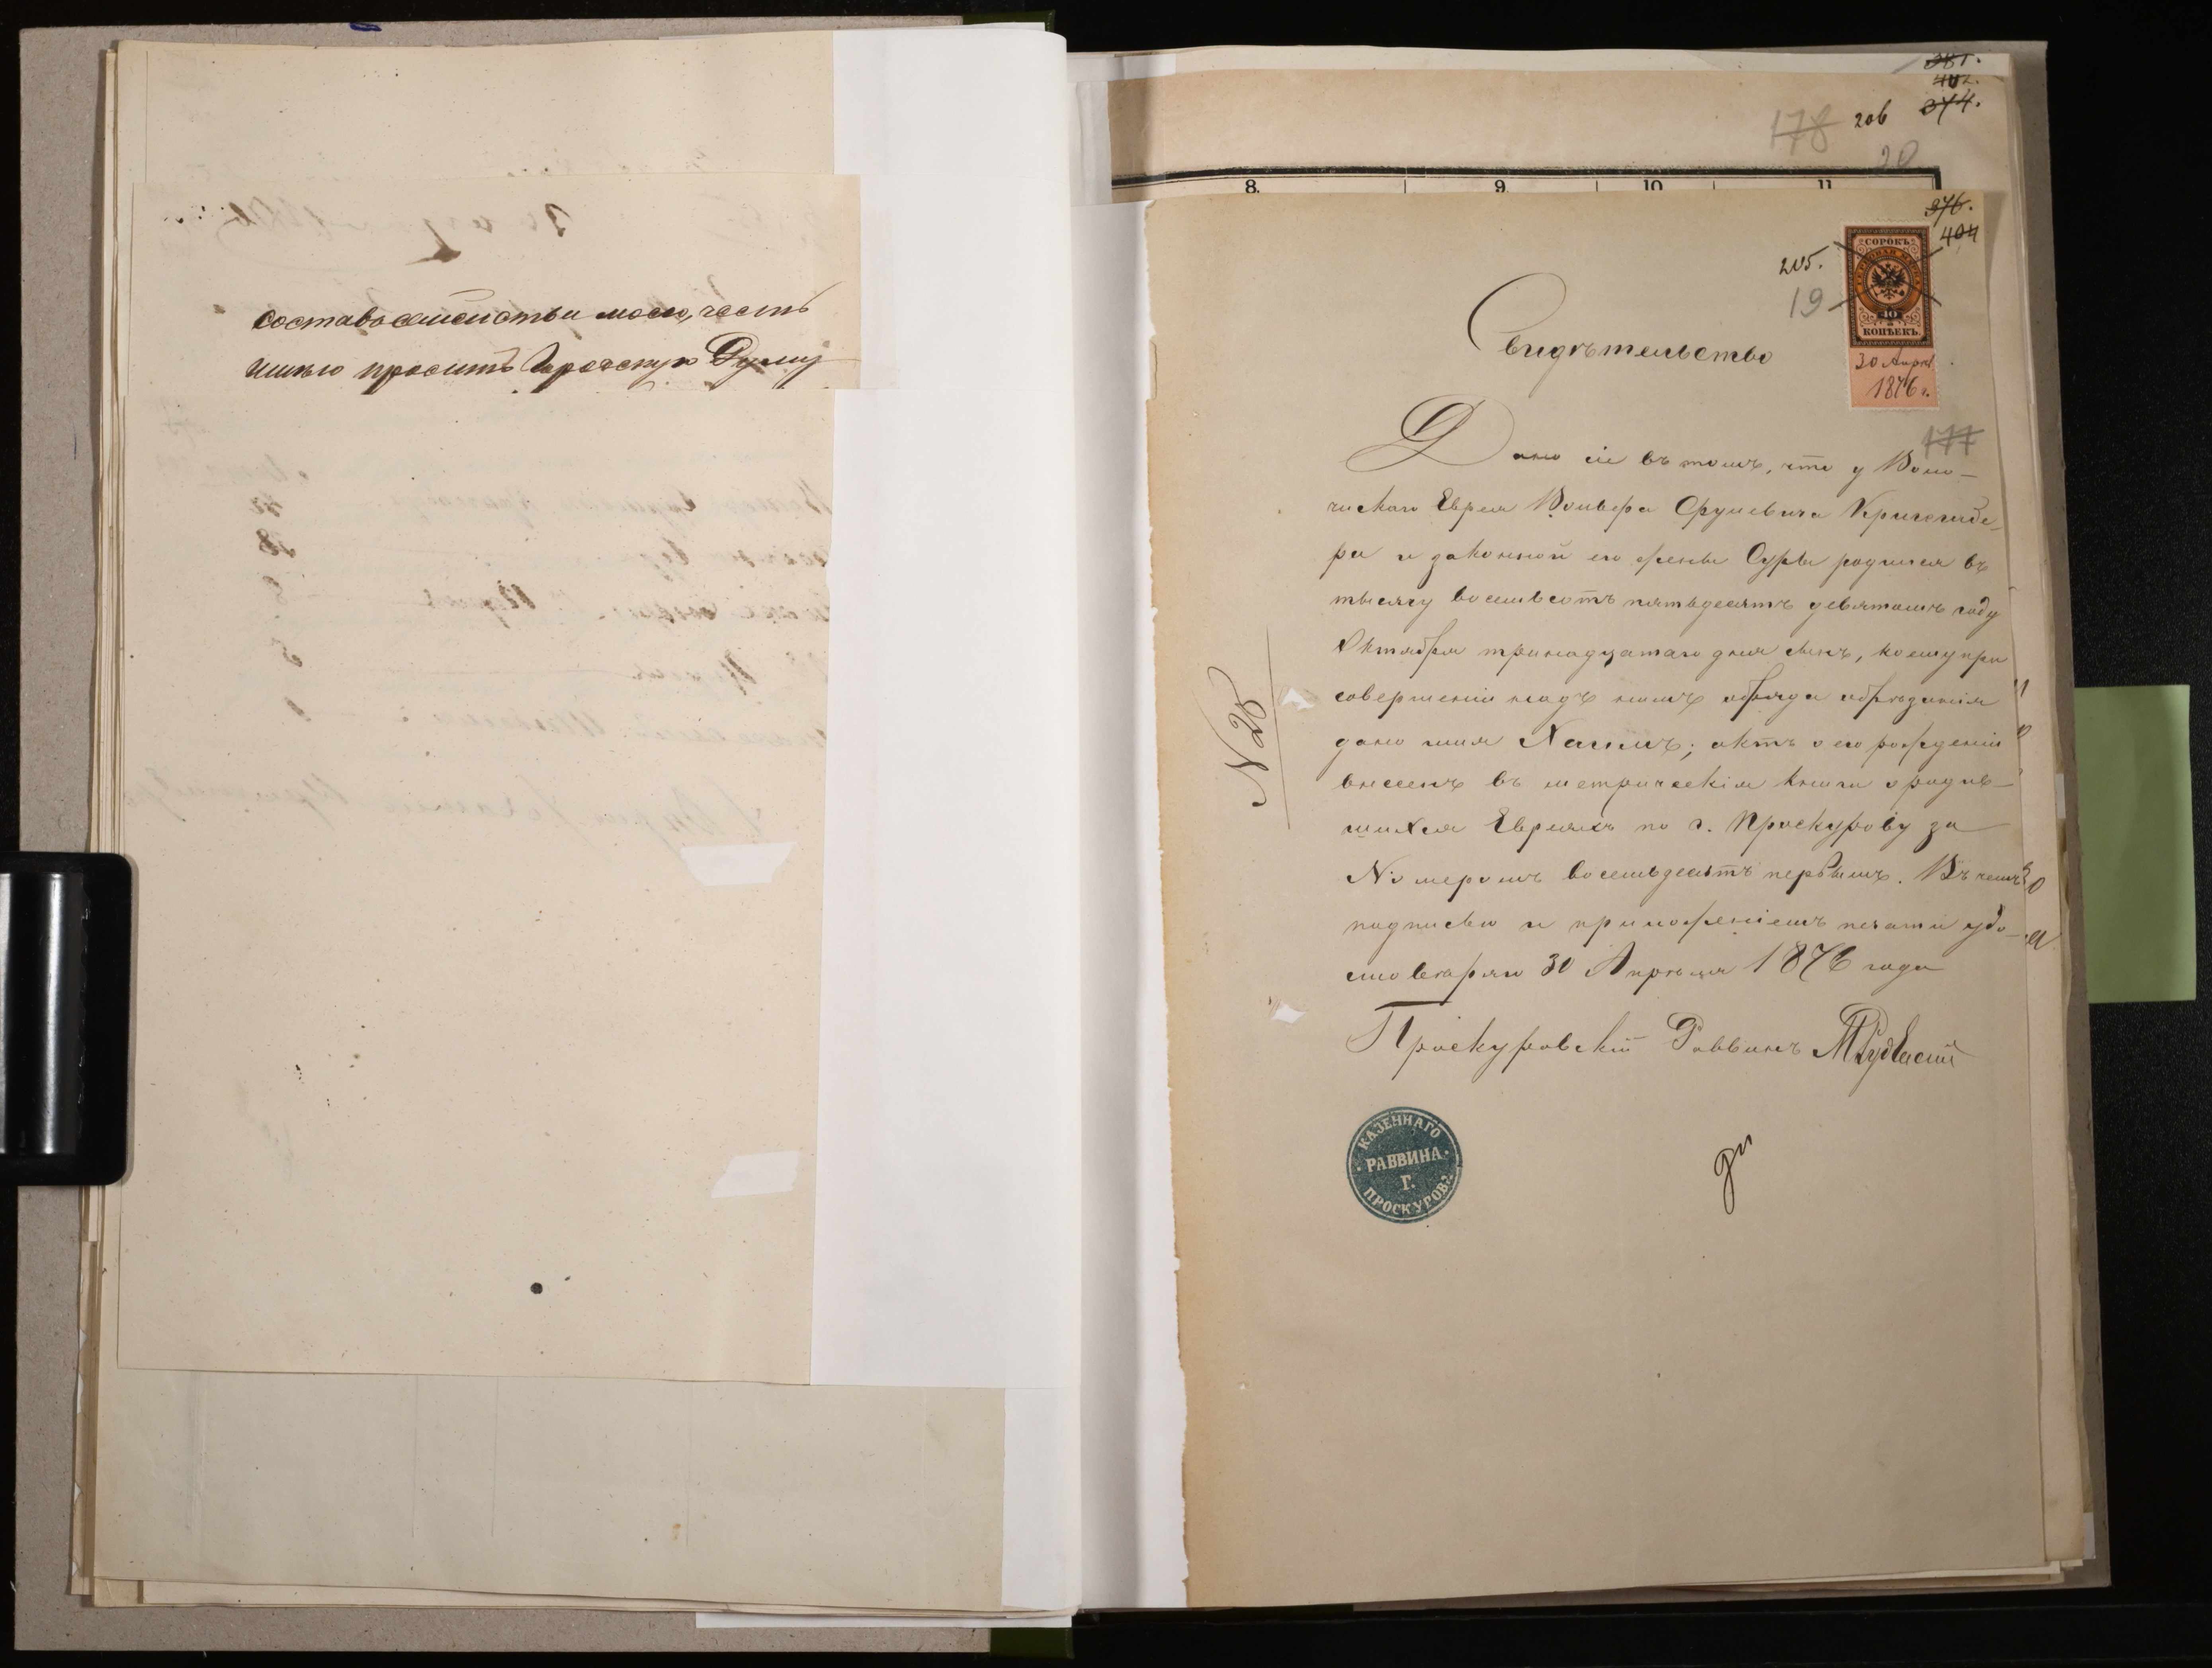 состава семейства моего, честь
имею просить Городскую Думу
381.
402.
374.
178 206
20
8. 9. 10. 11.
376.
404
205.
19
СОРОКЪ
40
КОПѢЕКЪ.
30 Апрѣл
1876 г.
177
Свидѣтельство
Дано сіе въ томъ, что у Воло-
чискаго Еврея Вольфа Сруле­вича
ра и законной его жены Суры родился въ
тысячу восемьсотъ пятьдесятъ девятомъ году
Октября тринадцатаго дня сынъ, коему при
совершеніи надъ нимъ обряда обрѣзанія
дано имя Хаимъ; актъ о его рожденіи
внесенъ въ метрическія книги о родив-
шихся Евреяхъ по г. Проскурову за
Номеромъ восемьдесятъ первымъ. Въ чемъ
подписью и приложеніемъ печати удо-
стоверяю 30 Апрѣля 1876 года
Проскуровскій Раввинъ
№ 25
КАЗЕННАГО
РАВВИНА
Г.
ПРОСКУРОВА